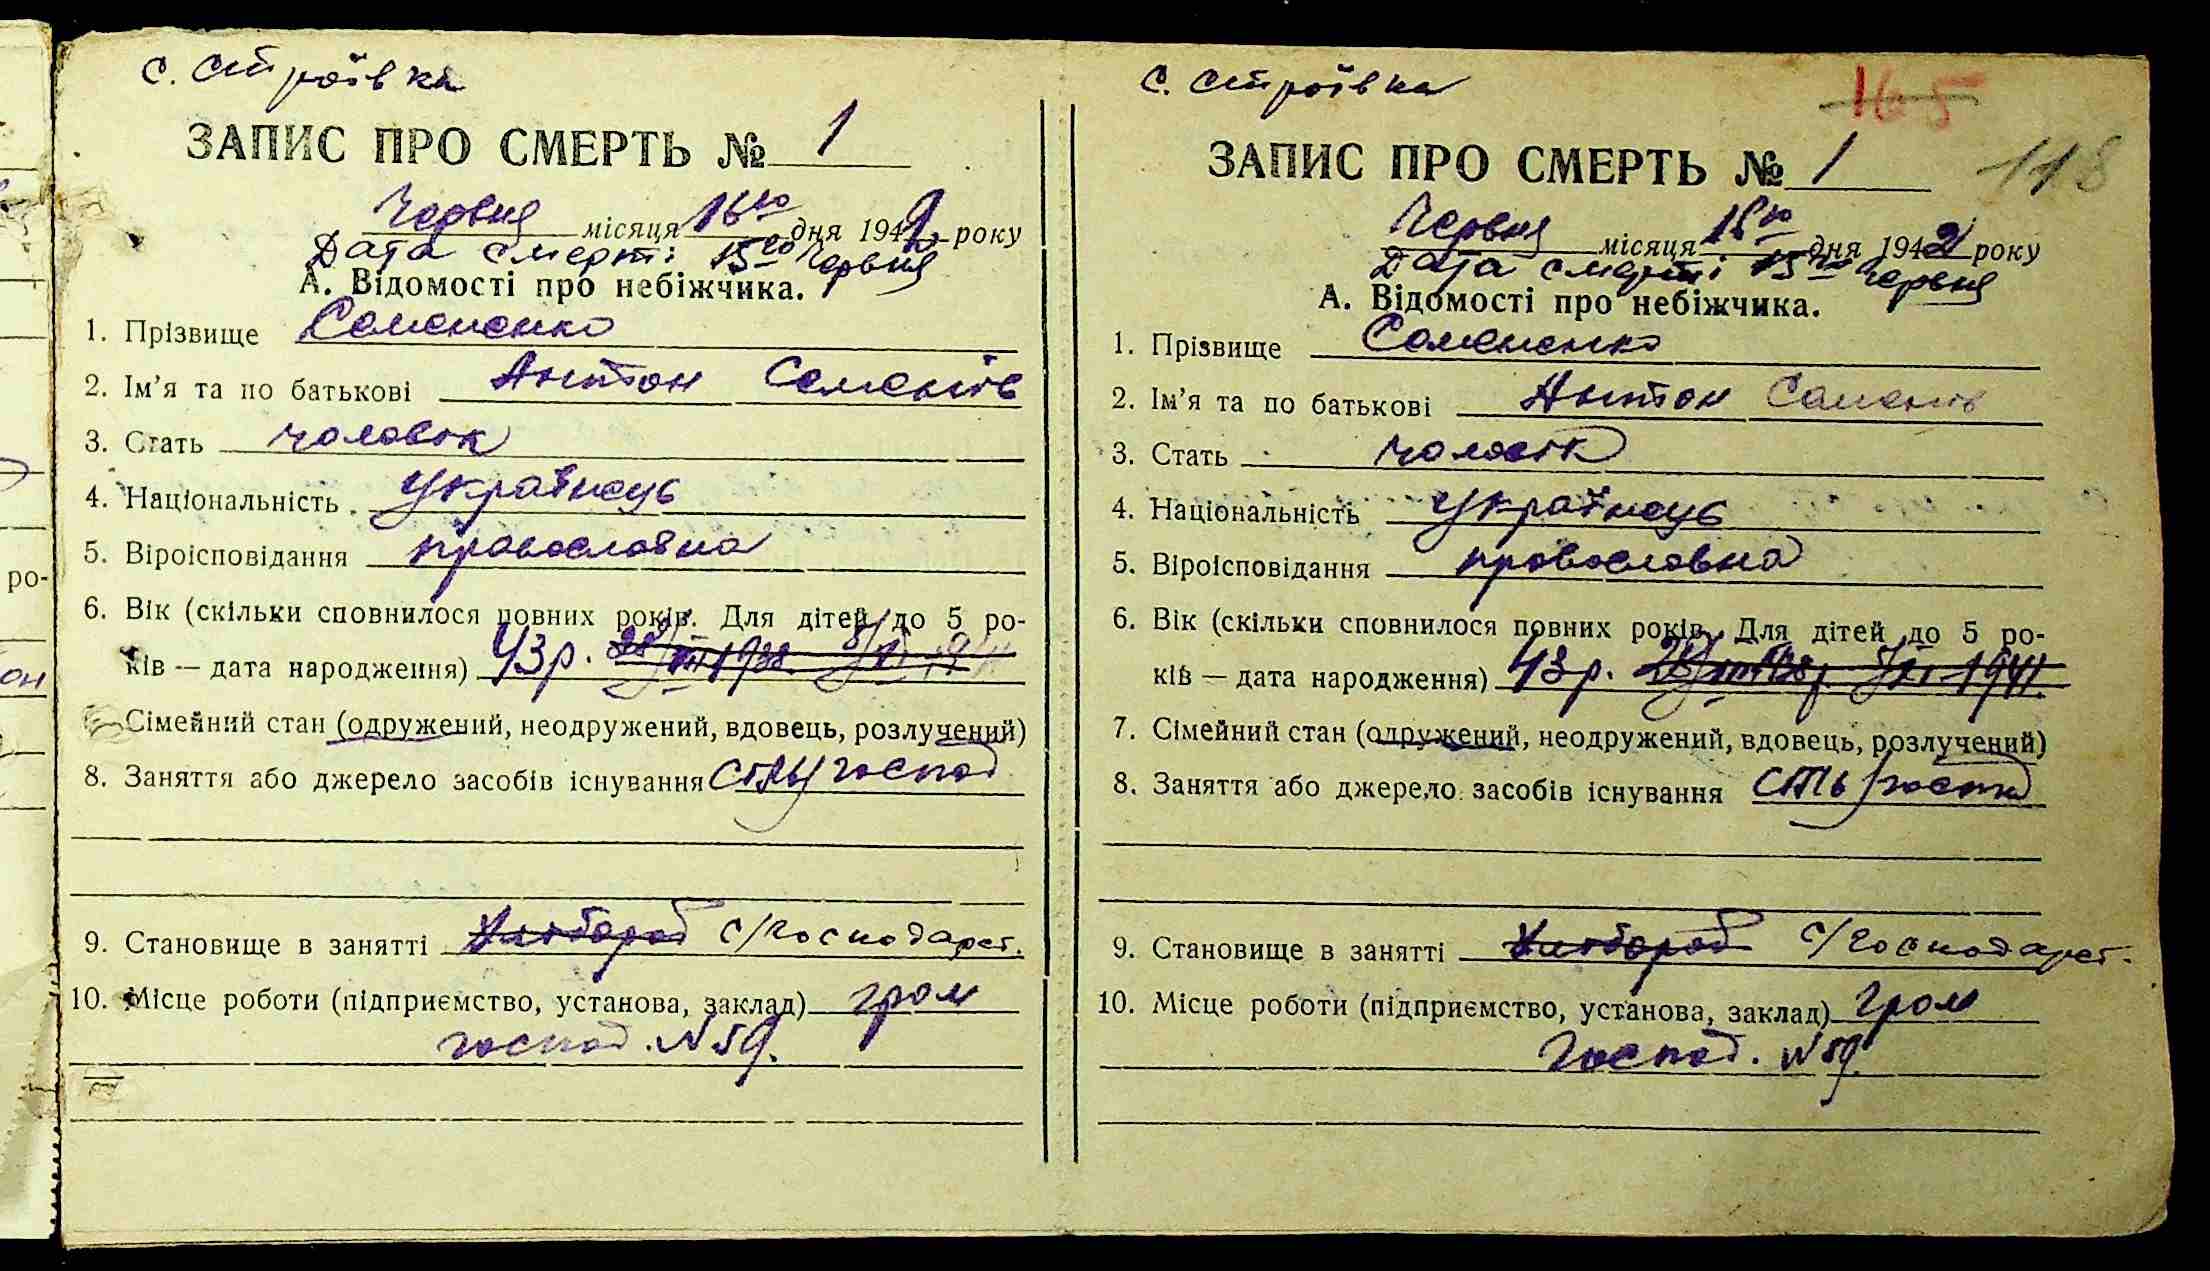 с. Строївка
ЗАПИС ПРО СМЕРТЬ № 1
Червня місяця 16го дня 1942 року
Дата смерті: 15го Червня
А. Відомості про небіжчика.
1. Прізвище Семененко
2. Ім'я та по батькові Антон Семенів
3. Стать чоловік
4. Національність Українець
5. Віроісповідання православна
6. Вік (скільки сповнилося повних років. Для дітей до 5 ро-
ків — дата народження) 43 р.
Сімейний стан (одружений, неодружений, вдовець, розлучений)
8. Заняття або джерело засобів існування господ
9. Становище в занятті Хлібороб с/господарст.
10. Місце роботи (підприємство, установа, заклад) гром
господ. N 59.
с. Строївка
165
ЗАПИС ПРО СМЕРТЬ № 1
118
Червня місяця 16го дня 1942 року
Дата смерті: 15го Червня
А. Відомості про небіжчика.
1. Прізвище Семененко
2. Ім'я та по батькові Антон Семенів
3. Стать чоловік
4. Національність Українець
5. Віроісповідання православна
6. Вік (скільки сповнилося повних років. Для дітей до 5 ро-
ків — дата народження) 43 р. 1941.
7. Сімейний стан (одружений, неодружений, вдовець, розлучений)
8. Заняття або джерело засобів існування сіль господ
9. Становище в занятті Хлібороб с/господарст.
10. Місце роботи (підприємство, установа, заклад) гром
Господ. N 59.
ро-
он